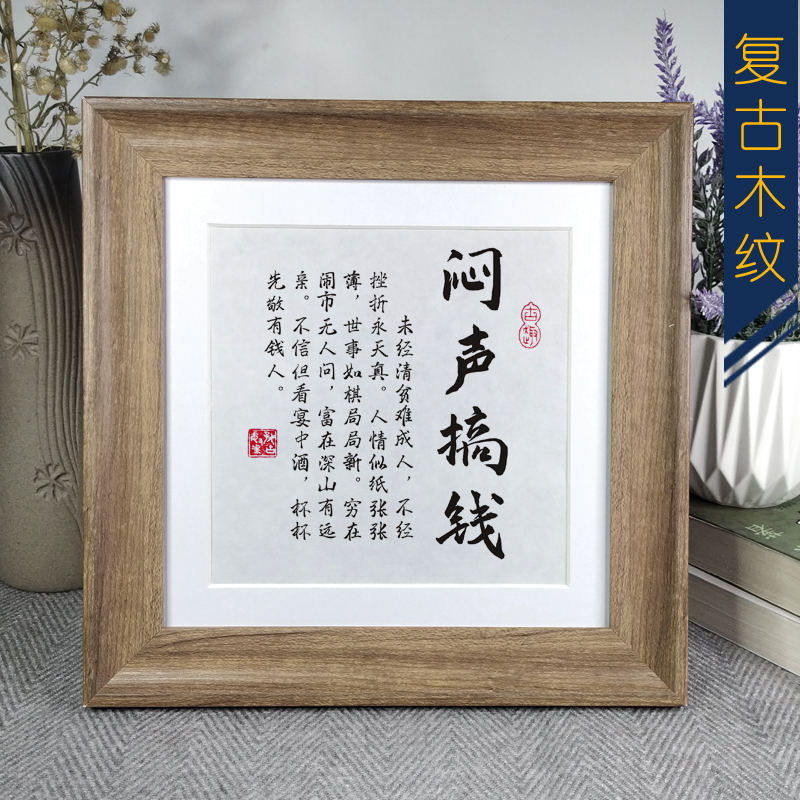 复古木纹
闷声搞钱
古趣
未经清贫难成人，不经
挫折永天真。人情似纸张张
薄，世事如棋局局新。穷在
闹市无人问，富在深山有远
亲。不信但看宴中酒，杯杯
先敬有钱人。